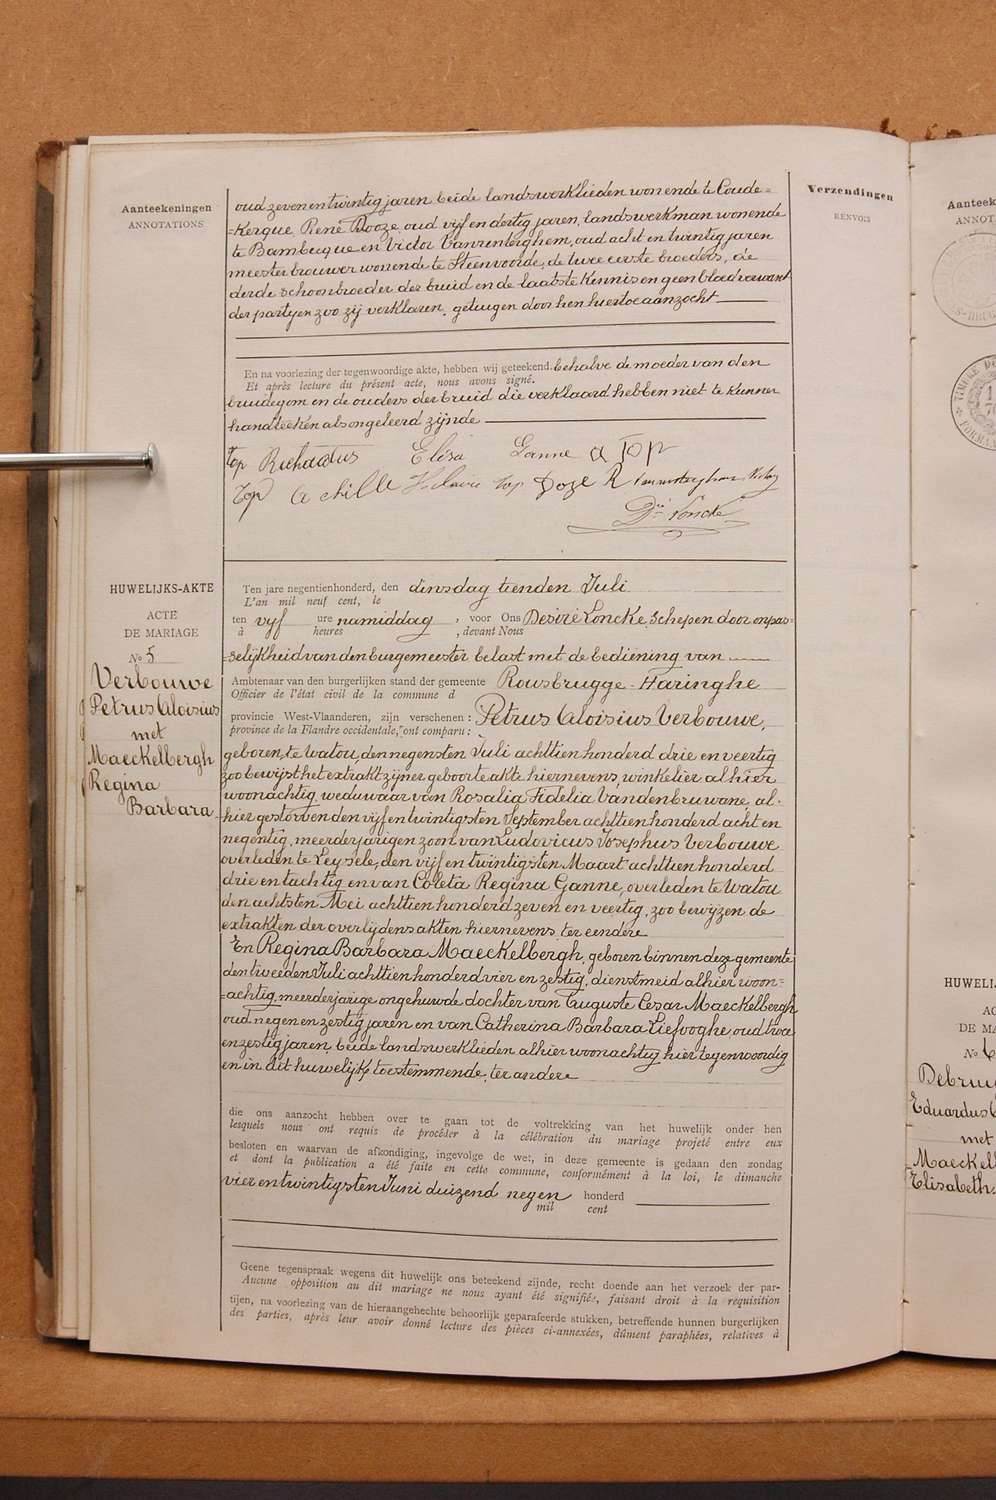 Aanteekeningen
ANNOTATIONS
Verzendingen
RENVOIS
oud zeven en twintig jaren beide landswerklieden wonende te Coude=
=kerque, René Dooze oud vijf en dertig jaren, landswerkman wonende
te Bambecque en Victor Vanrenterghem, oud acht en twintig jaren
meester brouwer wonende te Steenvoorde, de twee eerste broeders, de
derde schoonbroeder der bruid en de laatste kennis en geen bloedverwant
der partyen zoo zij verklaren, getuigen door hen hiertoe aanzocht
En na voorlezing der tegenwoordige akte, hebben wij geteekend. behalve de moeder van den
Et après lecture du présent acte, nous avons signé.
bruidegom en de ouders der bruid die verklaard hebben niet te kunnen
handteeken als ongeleerd zijnde
Top Richardus Elisa Ganne A Top
Top Achille Hilaire Top Doze R Vanrenterghem Victor
Dré Loncke
HUWELIJKS-AKTE
ACTE
DE MARIAGE
No 5
Verbouwe
Petrus Aloisius
met
Maeckelbergh
Regina
Barbara
Ten jare negentienhonderd, den dinsdag tienden Juli
L'an mil neuf cent, le
ten vijf ure namiddag, voor Ons Desiré Loncke, Schepen door onpas=
à heures , devant Nous
=selijkheid van den burgemeester belast met de bediening van
Ambtenaar van den burgerlijken stand der gemeente Rousbrugge-Haringhe
Officier de l'état civil de la commune d
provincie West-Vlaanderen, zijn verschenen: Petrus Aloisius Verbouwe,
province de la Flandre occidentale, ont comparu:
geboren te Watou, den negensten Juli achttien honderd drie en veertig
zoo bewijst het extrakt zijner geboorte akte hiernevens, winkelier alhier
woonachtig, weduwaar van Rosalia Fidelia Vandenbruwane, al=
hier gestorven den vijf en twintigsten September achttien honderd acht en
negentig, meerderjarigen zoon van Ludovicus Josephus Verbouwe
overleden te Leysele, den vijf en twintigsten Maart achttien honderd
drie en tachtig en van Coleta Regina Ganne, overleden te Watou
den achtsten Mei achttien honderd zeven en veertig, zoo bewijzen de
extrakten der overlijdensakten hiernevens, ter eendere
En Regina Barbara Maeckelbergh, geboren binnen deze gemeente
den tweeden Juli achttien honderd vier en zestig, dienstmeid alhier woon=
=achtig, meerderjarige ongehuwde dochter van Auguste Cesar Maeckelbergh
oud negen en zestig jaren en van Catherina Barbara Liefooghe, oud twee
en zestig jaren, beide landswerklieden alhier woonachtig hier tegenwoordig
en in dit huwelijk toestemmende, ter andere
die ons aanzocht hebben over te gaan tot de voltrekking van het huwelijk onder hen
lesquels nous ont requis de procéder à la célébration du mariage projeté entre eux
besloten en waarvan de afkondiging, ingevolge de wet, in deze gemeente is gedaan den zondag
et dont la publication a été faite en cette commune, conformément à la loi, le dimanche
vier en twintigsten Juni duizend negen honderd
mil cent
Geene tegenspraak wegens dit huwelijk ons beteekend zijnde, recht doende aan het verzoek der par-
Aucune opposition au dit mariage ne nous ayant été signifiée, faisant droit à la requisition
tijen, na voorlezing van de hieraangehechte behoorlijk geparafeerde stukken, betreffende hunnen burgerlijken
des parties, après leur avoir donné lecture des pièces ci-annexées, dûment paraphées, relatives à
Aanteek
ANNOT
HUWELIJ
AC
DE MA
No 6
Debru
Eduardus
met
Maeckel
Elisabeth